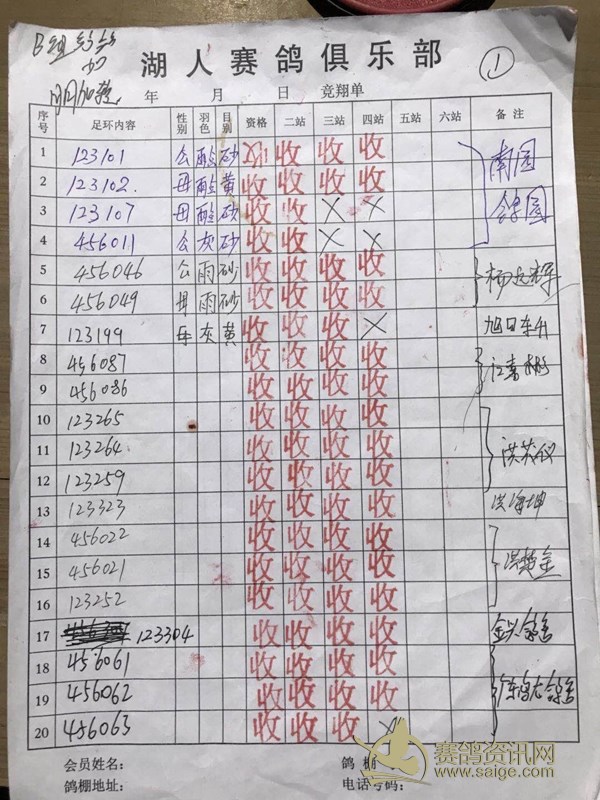 B组
①
湖人赛鸽俱乐部
年 月 日 竞翔单
序号 足环内容 性别 羽色 目别 资格 二站 三站 四站 五站 六站 备注
1 123101 公 酸 砂 收 收 收 收 南国
2 123102. 母 酸 黄 收 收 收 收
3 123107 母 酸 砂 收 收 × × 鸽园
4 456011 公 灰 砂 收 收 × ×
5 456046 公 雨 砂 收 收 收 收
6 456049 母 雨 砂 收 收 收 收
7 123199 母 灰 黄 收 收 收 × 旭日东升
8 456087 收 收 收 收
9 456086 收 收 收 收
10 123265 收 收 收 收
11 123264 收 收 收 收
12 123259 收 收 收 收
13 123323 收 收 收 收 洪海坤
14 456022 收 收 收 收
15 456021 收 收 收 收
16 123252 收 收 收 收
17 123304 收 收 收 收
18 456061 收 收 收 收
19 456062 收 收 收 收
20 456063 收 收 收 ×
会员姓名: 鸽棚
鸽棚地址: 电话号码:
赛鸽资讯网
www.saige.com